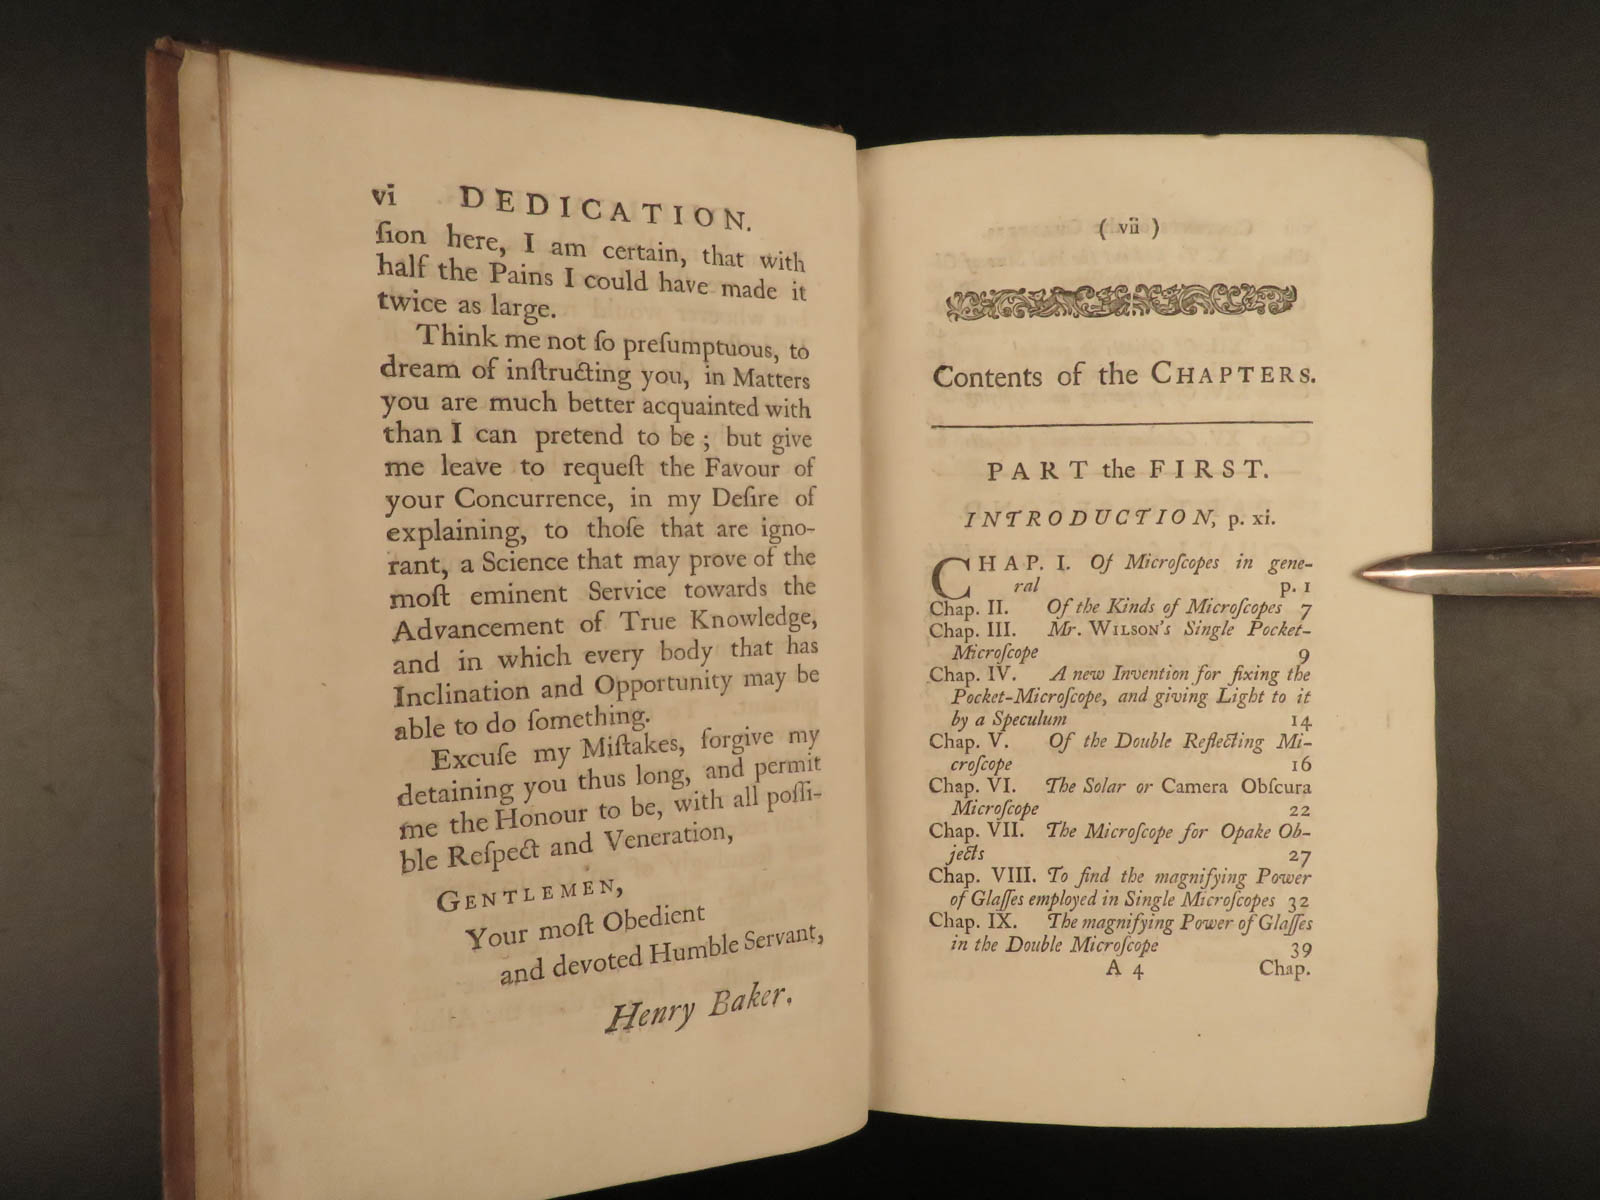 vi DEDICATION.
ſion here, I am certain, that with
half the Pains I could have made it
twice as large.
Think me not ſo preſumptuous, to
dream of inſtructing you, in Matters
you are much better acquainted with
than I can pretend to be; but give
me leave to requeſt the Favour of
your Concurrence, in my Deſire of
explaining, to thoſe that are igno-
rant, a Science that may prove of the
moſt eminent Service towards the
Advancement of True Knowledge,
and in which every body that has
Inclination and Opportunity may be
able to do ſomething.
Excuſe my Miſtakes, forgive my
detaining you thus long, and permit
me the Honour to be, with all poſſi-
ble Reſpect and Veneration,
GENTLEMEN,
Your moſt Obedient
and devoted Humble Servant,
Henry Baker.
( vii )
Contents of the CHAPTERS.
PART the FIRST.
INTRODUCTION, p. xi.
CHAP. I. Of Microſcopes in gene-
ral p. 1
Chap. II. Of the Kinds of Microſcopes 7
Chap. III. Mr. WILSON's Single Pocket-
Microſcope 9
Chap. IV. A new Invention for fixing the
Pocket-Microſcope, and giving Light to it
by a Speculum 14
Chap. V. Of the Double Reflecting Mi-
croſcope 16
Chap. VI. The Solar or Camera Obſcura
Microſcope 22
Chap. VII. The Microſcope for Opake Ob-
jects 27
Chap. VIII. To find the magnifying Power
of Glaſſes employed in Single Microſcopes 32
Chap. IX. The magnifying Power of Glaſſes
in the Double Microſcope 39
A 4 Chap.